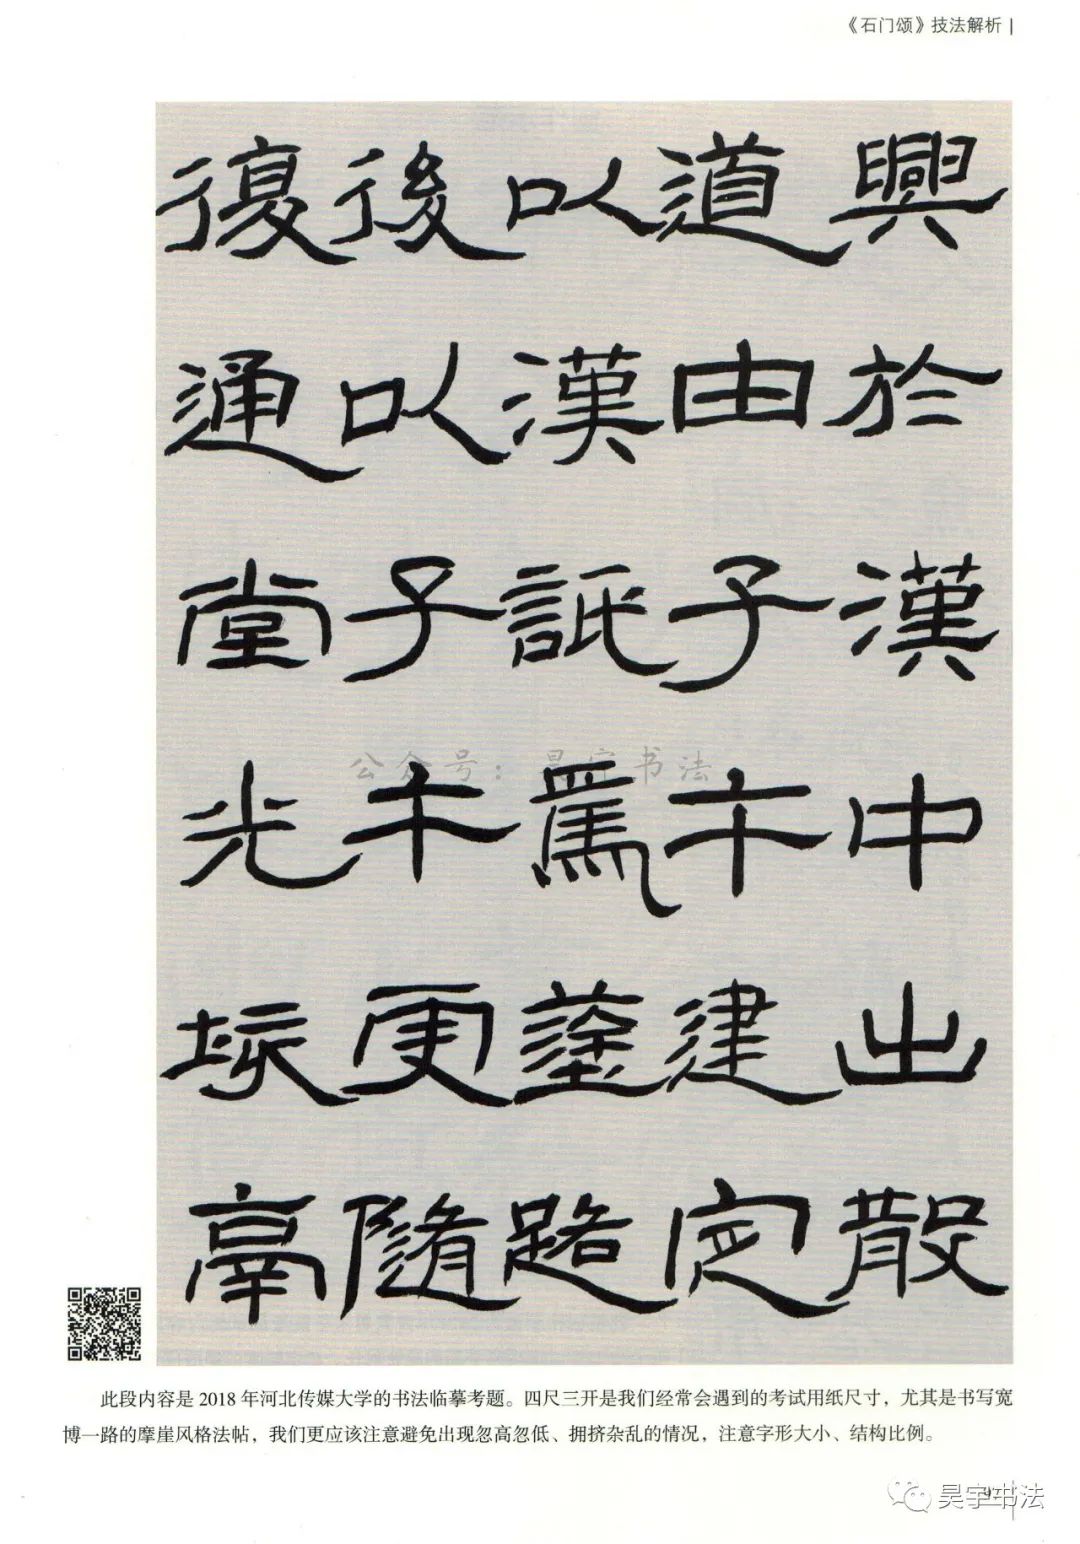 《石门颂》技法解析
興於漢中出散
道由子午建定
以漢詆焉塗路
後以子午更隨
復通堂光垓鬲
公众号：昊宇书法
此段内容是 2018 年河北传媒大学的书法临摹考题。四尺三开是我们经常会遇到的考试用纸尺寸，尤其是书写宽
博一路的摩崖风格法帖，我们更应该注意避免出现忽高忽低、拥挤杂乱的情况，注意字形大小、结构比例。
昊宇书法